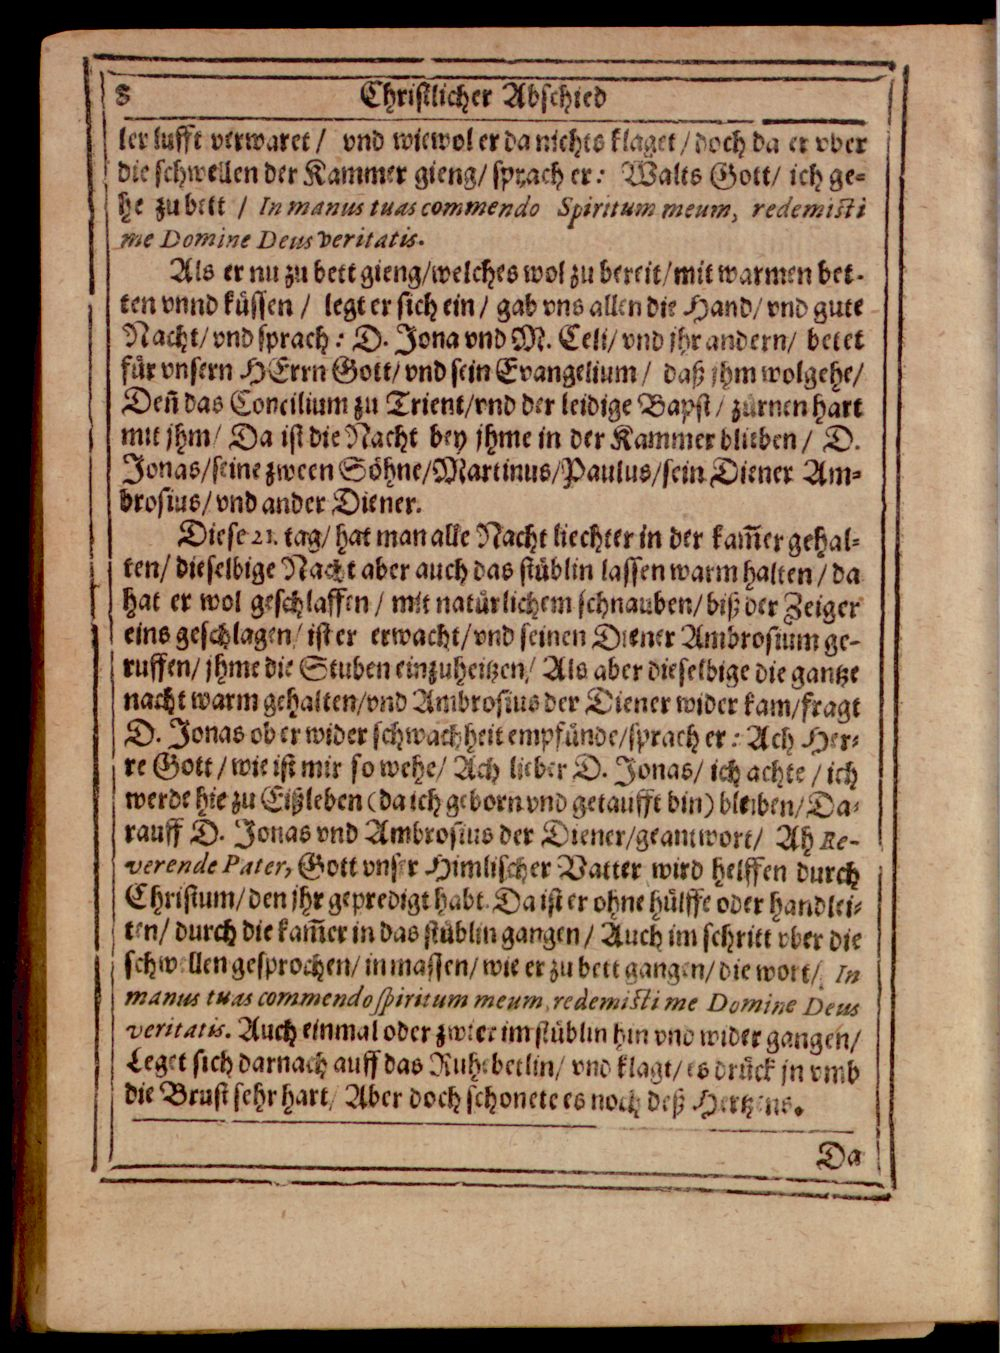 8 Christlicher Abschied
ler lufft verwaret / vnd wiewol er da nichts klaget / doch da er vber
die schwellen der Kammer gieng / sprach er: Walts Gott / ich ge-
he zu bett / In manus tuas commendo Spiritum meum, redemisti
me Domine Deus veritatis.
Als er nu zu bett gieng / welches wol zu bereit / mit warmen bet-
ten vnnd küssen / legt er sich ein / gab vns allen die Hand / vnd gute
Nacht / vnd sprach: D. Jona vnd M. Celi / vnd jhr andern / betet
für vnsern HErrn Gott / vnd sein Evangelium / daß jhm wolgehe /
Deñ das Concilium zu Trient / vnd der leidige Bapst / zürnen hart
mit jhm / Da ist die Nacht bey jhme in der Kammer blieben / D.
Jonas / seine zween Söhne / Martinus / Paulus / sein Diener Am-
brosius / vnd ander Diener.
Diese 21. tag / hat man alle Nacht liechter in der kam̅er gehal-
ten / dieselbige Nacht aber auch das stüblin lassen warm halten / da
hat er wol geschlaffen / mit natürlichem schnauben / biß der Zeiger
eins geschlagen / ist er erwacht / vnd seinen Diener Ambrosium ge-
ruffen / jhme die Stuben einzuheitzen / Als aber dieselbige die gantze
nacht warm gehalten / vnd Ambrosius der Diener wider kam / fragt
D. Jonas ob er wider schwachheit empfünde / sprach er: Ach Her-
re Gott / wie ist mir so wehe / Ach lieber D. Jonas / ich achte / ich
werde hie zu Eißleben (da ich geborn vnd getaufft bin) bleiben / Da-
rauff D. Jonas vnd Ambrosius der Diener / geantwort / Ah Re-
verende Pater, Gott vnser Himlischer Vatter wird helffen durch
Christum / den jhr gepredigt habt. Da ist er ohne hülffe oder handlei-
ten / durch die kam̅er in das stüblin gangen / Auch im schritt vber die
schwellen gesprochen / inmassen / wie er zu bett gangen / die wort / In
manus tuas commendo spiritum meum, redemisti me Domine Deus
veritatis. Auch einmal oder zwier im stüblin hin vnd wider gangen /
Leget sich darnach auff das Ruhebetlin / vnd klagt / es drück jn vmb
die Brust sehr hart / Aber doch schonete es noch deß Hertzens.
Da